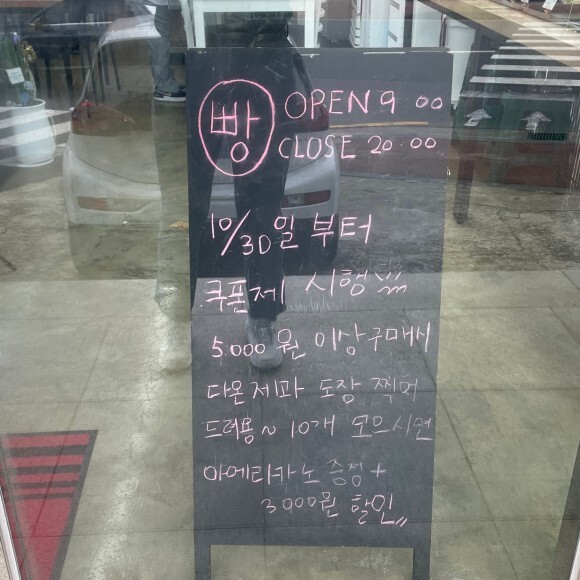 빵 OPEN 9 00
CLOSE 20:00
10/30일 부터
쿠폰제 시행!!!
5.000 원 이상구매시
다온제과 도장 찍어
드려용~ 10개 모으시면
아메리카노 증정 +
3000원 할인,,